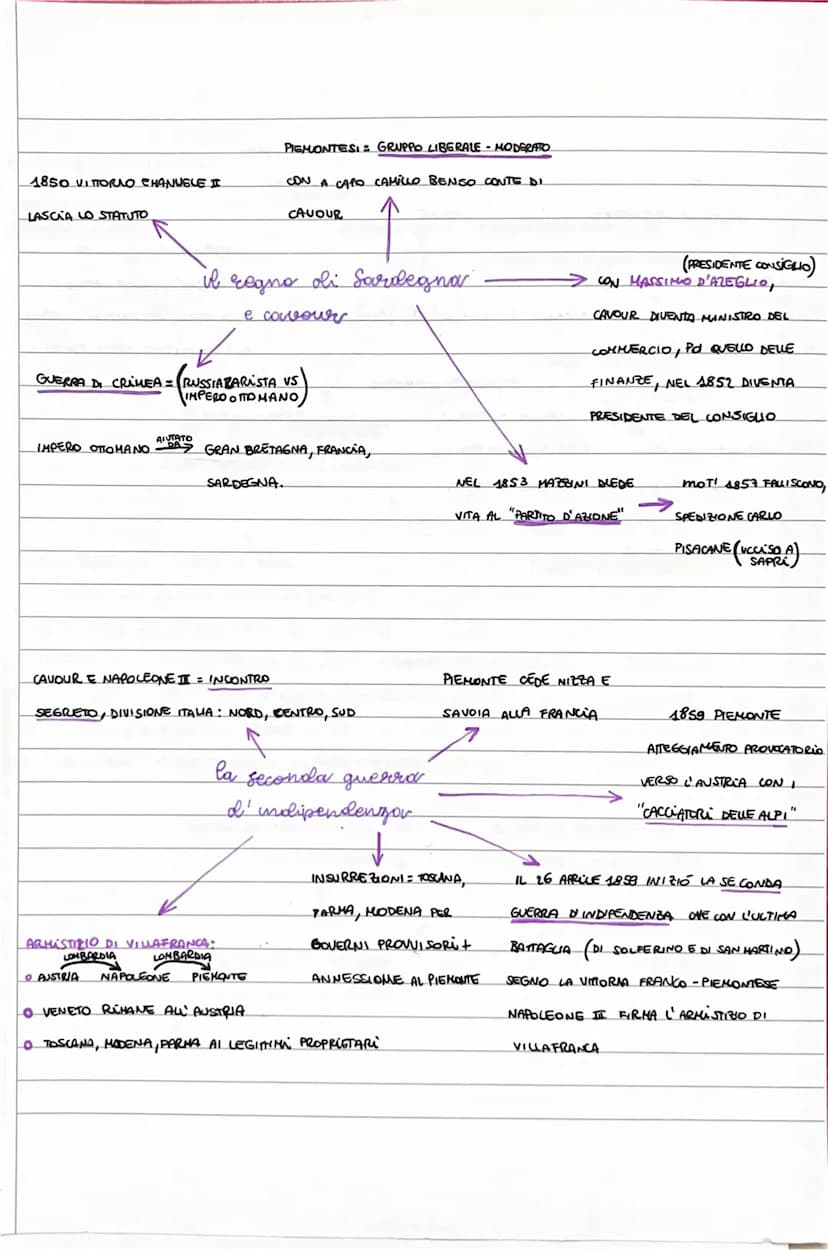 PIEMONTESI = GRUPPO LIBERALE - MODERATO
CON A CAPO CAMILLO BENSO CONTE DI
CAVOUR
1850 VITTORIO EMANUELE II
LASCIA LO STATUTO
il regno di Sardegna
e cavour
(PRESIDENTE CONSIGLIO)
CON MASSIMO D'AZEGLIO,
CAVOUR DIVENTA MINISTRO DEL
COMMERCIO, POI QUELLO DELLE
FINANZE, NEL 1852 DIVENTA
PRESIDENTE DEL CONSIGLIO
GUERRA DI CRIMEA = (RUSSIA ZARISTA VS
IMPERO OTTOMANO)
IMPERO OTTOMANO AIUTATO DA GRAN BRETAGNA, FRANCIA,
SARDEGNA.
NEL 1853 MAZZINI DIEDE
VITA AL "PARTITO D'AZIONE"
MOTI 1857 FALLISCONO,
SPEDIZIONE CARLO
PISACANE (UCCISO A
SAPRI)
CAVOUR E NAPOLEONE III = INCONTRO
SEGRETO, DIVISIONE ITALIA: NORD, CENTRO, SUD
PIEMONTE CEDE NIZZA E
SAVOIA ALLA FRANCIA
1859 PIEMONTE
ATTEGGIAMENTO PROVOCATORIO
VERSO L'AUSTRIA CON I
"CACCIATORI DELLE ALPI"
la seconda guerra
d'indipendenza
INSURREZIONI = TOSCANA,
PARMA, MODENA PER
GOVERNI PROVVISORI +
ANNESSIONE AL PIEMONTE
IL 26 APRILE 1859 INIZIÓ LA SECONDA
GUERRA D'INDIPENDENZA CHE CON L'ULTIMA
BATTAGLIA (DI SOLFERINO E DI SAN MARTINO)
SEGNO LA VITTORIA FRANCO - PIEMONTESE
NAPOLEONE III FIRMA L'ARMISTIZIO DI
VILLAFRANCA
ARMISTIZIO DI VILLAFRANCA:
LOMBARDIA LOMBARDIA
AUSTRIA NAPOLEONE PIEMONTE
VENETO RIMANE ALL'AUSTRIA
TOSCANA, MODENA, PARMA AI LEGITTIMI PROPRIETARI